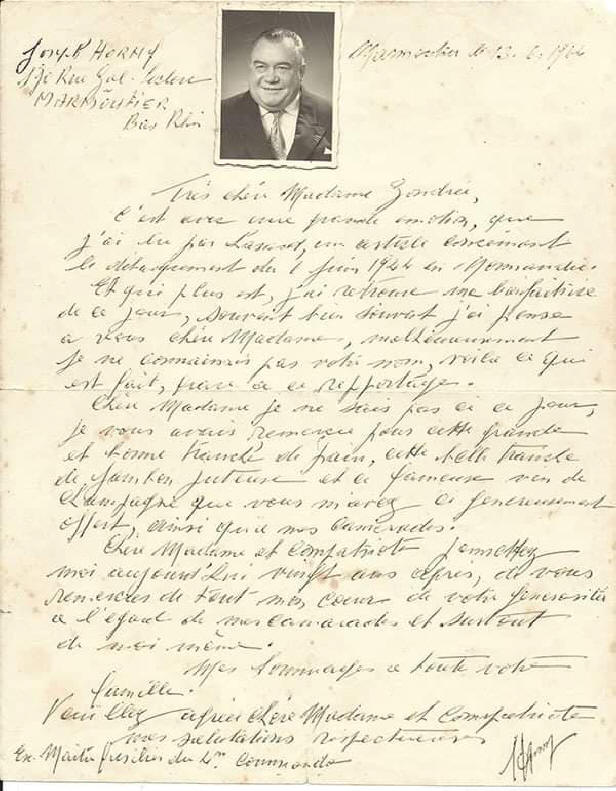 Joseph HORNY
Rue Gal. Leclerc
MARMOUTIER
Bas Rhin
Marmoutier le 13. 6. 1964
Très chère Madame Gondrée,
C'est avec une grande emotion, que
j'ai lu par hasard, un article concernant
le débarquement du 6 Juin 1944 en Normandie.
Et qui plus est, j'ai retrouvé une bienfaitrice
de ce jour, souvent bien souvent j'ai pensé
a vous chère Madame, malheureusement
je ne connaissais pas votre nom, voila ce qui
est fait, grace a ce reportage.
Chère Madame je ne sais pas si ce jour,
je vous avais remercie pour cette grande
et bonne tranche de pain, cette belle tranche
de jambon juteuse et ce fameux vin de
Champagne que vous m'avez si genereusement
offert, ainsi qu'a mes camarades.
Chère Madame et Compatriote permettez
moi aujourd'hui vingt ans après, de vous
remercier de tout mon coeur de votre generosité
a l'égard de mes camarades et surtout
de moi même.
Mes hommages a toute votre
famille.
Veuillez agréer chère Madame et Compatriote
mes salutations respectueuses
Ex. Maitre fusilier du Commando
Horny